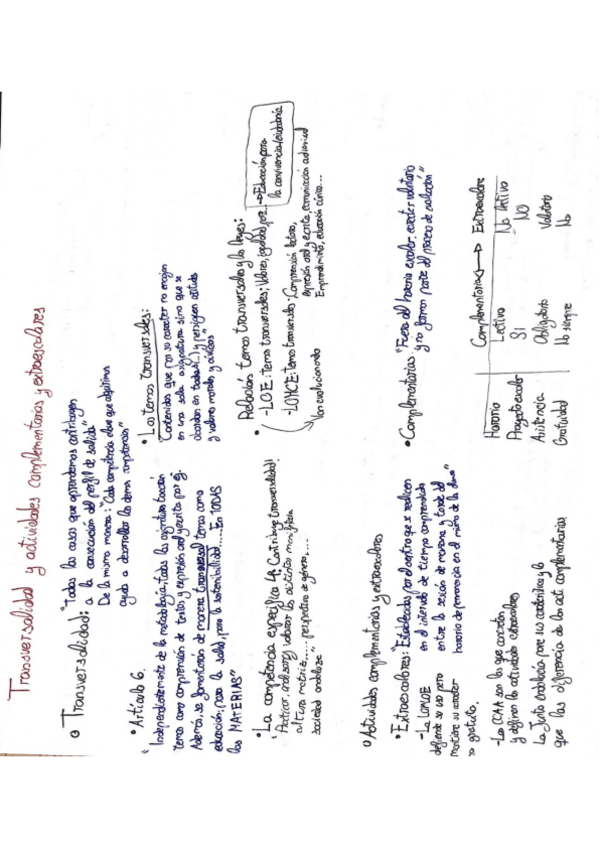 Transversalidad y actividades complementarias y extraescolares
Transversalidad: "Todas las cosas que aprendemos contribuyen
a la consecución del perfil de salida"
De la misma manera: "Cada competencia clave que adquirimos
ayuda a desarrollar las demás competencias"
• Artículo 6.
"Independientemente de la metodología, todas las asignaturas
temas como comprensión de textos y expresión oral y escrita por ej.
Además, se fomentarán de manera transversal temas como
educación para la salud, para la sostenibilidad.... En TODAS
las MATERIAS"
• La competencia específica 4: Contribuye transversalidad!
"Practicar, analizar y valorar las distintas
perspectiva de género....
sociedad andaluza"
• Los temas transversales:
"Contenidos que por su carácter no encajan
en una sola asignatura sino que se
abordan en todas (...) y persiguen actitudes
y valores morales y cívicos"
Relación temas transversales y las leyes:
• -LOGSE: Temas transversales; Valores, igualdad, paz... → Educación para
la convivencia/ciudadanía
-LOMCE: Comprensión lectora,
expresión oral y escrita, comunicación audiovisual
Emprendimiento, educación cívica...
han evolucionado
Actividades complementarias y extraescolares
• Extraescolares: "Establecidas por el centro que se realicen
en el intervalo de tiempo comprendido
entre la sesión de mañana y tarde del
horario de permanencia en el mismo de los alumnos"
- La LOMLOE
defiende su uso pero
mantiene su carácter
no gratuito.
- Las CCAA son las que concretan
y definen las actividades extraescolares
La Junta Andalucía
que las diferencia de las act. complementarias
• Complementarias: "Fuera del horario escolar, carácter voluntario
y no forman parte del proceso de evaluación"
Complementarias ↔ Extraescolares
Horario Lectivo No lectivo
Proyecto escolar Sí NO
Asistencia Obligatoria Voluntaria
Gratuidad No siempre No